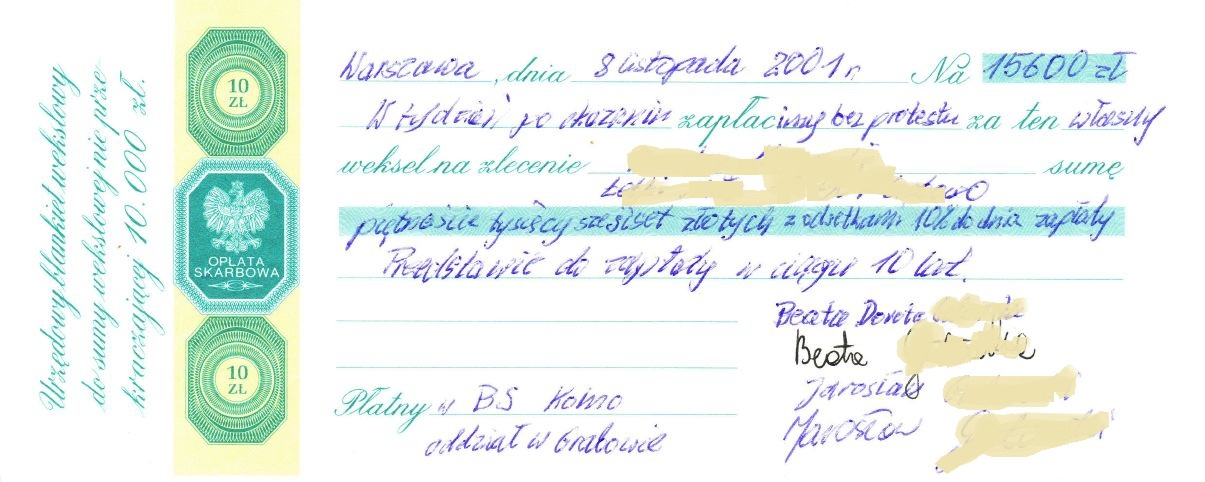 Urzędowy blankiet wekslowy
do sumy wekslowej nie prze-
kraczającej 10.000 zł.
10
ZŁ
OPŁATA
SKARBOWA
10
ZŁ
Warszawa, dnia 8 listopada 2001 r. Na 15600 zł
W tydzień po okazaniu zapłacimy bez protestu za ten własny
weksel na zlecenie sumę
piętnaście tysięcy sześćset złotych z odsetkami 10% do dnia zapłaty
Przedstawić do zapłaty w ciągu 10 lat.
Beata Dorota
Beata
Jarosław
Jarosław
Płatny w BS Kolno
oddział w Grabowie